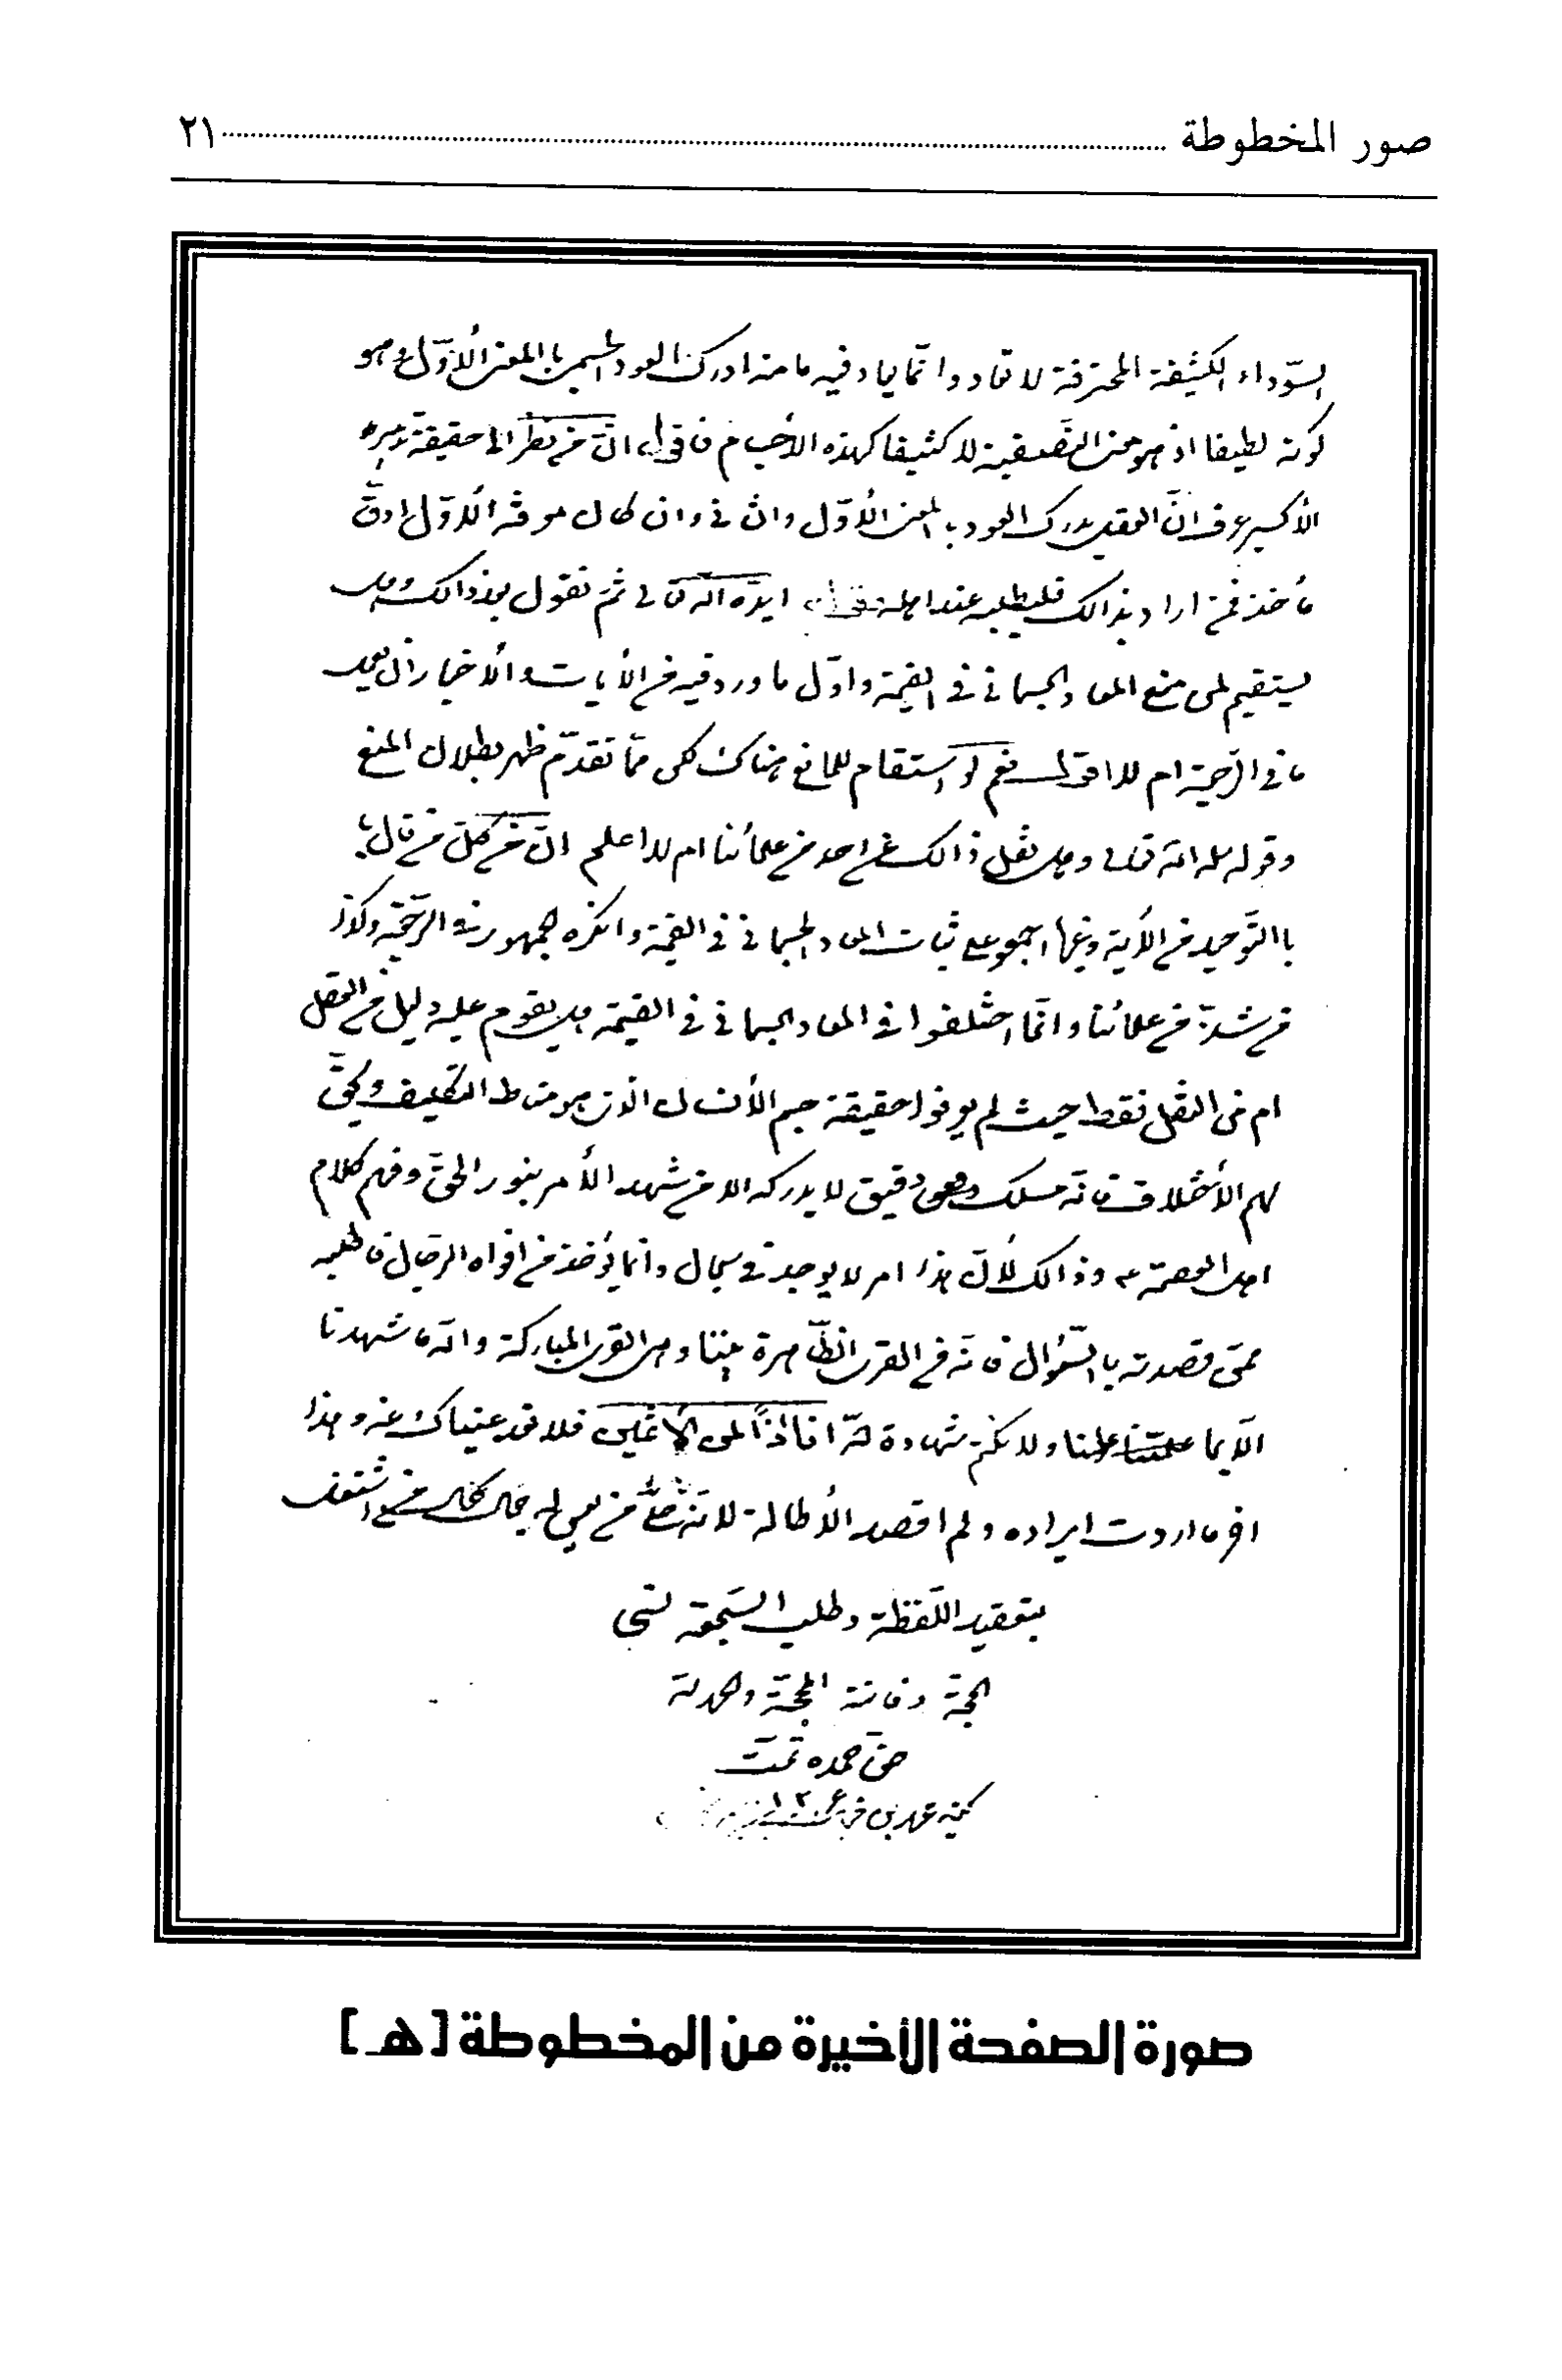 صور المخطوطة ........ ٢١
السّوداء الكثيفة المحترقة لا تعاد وانّما يعاد فيه ما منه ادرك العود الجسمى با المعنى الأوّل وهو
كونه لطيفا اذ هو من التصفية لا كثيفا كهذه الأجسام فاقول انّ من نظر الى حقيقة تدبير
الأكسير عرف انّ العقل يدرك العود بالمعنى الأوّل والثانى وان كان معرفة الأوّل ادقّ
مأخذ فمن اراد بذالك فليطلبه عند اهله ايّده اللّه تعالى ثمّ نقول بعد ذالك وهل
يستقيم لمن منع المعاد الجسمانى فى القيمة واوّل ما ورد فيه من الأيات والأخبار ان يعمل
ما فى الرّجعة ام لا اقول نعم لو استقام للمانع هناك لكن ممّا تقدّم ظهر بطلان المنع
وقوله سلمه اللّه تعالى وهل نقل ذالك عن احد من علمائنا ام لا اعلم انّ من كلّ من قال
باالتّوحيد من الأية وغيرها اجمعو على ثبات المعاد الجسمانى فى القيمة وانكره الجمهور فى الرّجعة وكذا
من شذّ من علمائنا وانّما اختلفوا فى المعاد الجسمانى فى القيمة هل يقوم عليه دليل من العقل
ام من النقل فقط حيث لم يعرفوا حقيقة جسم الأنسان الذى هو مناط التكليف وحقّ
لهم الأختلاف فانّه مسلك وعر دقيق لا يدركه الا من شهد الأمر بنور الحقّ وفهم كلام
اهل العصمة ع وذالك لأنّ هذا امر لا يوجد فى سجال وانما يؤخذ من افواه الرجال فاطلبه
ممّن قصدته باالسّؤال فانّه من القرى الظّاهرة بيننا وبين القرى المباركة واللّه ما شهدنا
الّا بما علمنا ولا نكتم شهادة اللّه انا اذاً لمن الأثمين فلا تعد عيناك عنه وهذا
اخر ما اردت ايراده ولم اقصد الأطالة لانّه من
بتعقيد اللّفظة وطلب السّجعة نسى
الحجّة وفاتته المحجّة والحمد للّه
حقّ حمده تمّت
١٢٠٤
صورة الصفحة الأخيرة من المخطوطة [هـ]